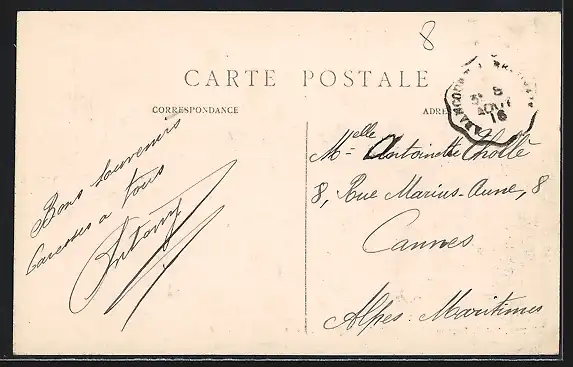 8
CARTE POSTALE
CORRESPONDANCE
ADRE
5 8
AOUT
16
Bons souvenirs
Caresses a tous
Antony
Mlle Antoinette Cholle
8, Rue Marius-Aune, 8
Cannes
Alpes-Maritimes